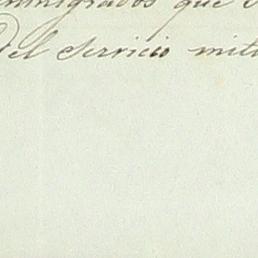 nmigrados que
del servicio mili